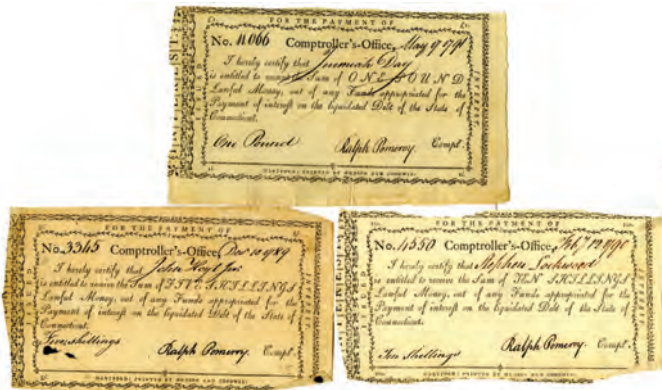 FOR THE PAYMENT OF
No. 11066 Comptroller's-Office, May 9 1791
I hereby certify that Jeremiah Day
is entitled to receive the Sum of ONE POUND
Lawful Money, out of any Funds appropriated for the
Payment of interest on the liquidated Debt of the State of
Connecticut.
One Pound Ralph Pomeroy. Compt.
HARTFORD: PRINTED BY HUDSON AND GOODWIN.
INTEREST.
FOR THE PAYMENT OF
No. 3345 Comptroller's-Office, Dec 10 1789
I hereby certify that John Hoyt Jur
is entitled to receive the Sum of FIVE SHILLINGS
Lawful Money, out of any Funds appropriated for the
Payment of interest on the liquidated Debt of the State of
Connecticut.
Five shillings Ralph Pomeroy. Compt.
HARTFORD: PRINTED BY HUDSON AND GOODWIN.
INTEREST.
FOR THE PAYMENT OF
No. 4550 Comptroller's-Office, Feby 12 1790
I hereby certify that Stephen Lockwood
is entitled to receive the Sum of TEN SHILLINGS
Lawful Money, out of any Funds appropriated for the
Payment of interest on the liquidated Debt of the State of
Connecticut.
Ten Shillings Ralph Pomeroy. Compt.
HARTFORD: PRINTED BY HUDSON AND GOODWIN.
INTEREST.